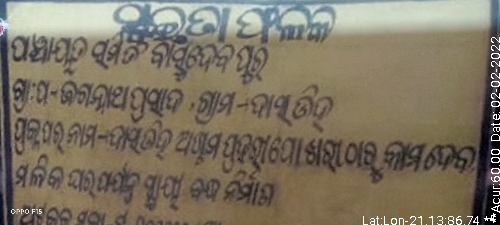 ସୂଚନା ଫଳକ
ପଞ୍ଚାୟତ ସମିତି ବାସୁଦେବପୁର
ଗ୍ରା:ପ-ଜଗନ୍ନାଥ ପ୍ରସାଦ, ଗ୍ରାମ-ଦାସଡିହ
ପ୍ରକଳ୍ପର ନାମ-ଦାସଡିହ ପୋଖରୀ ଠାରୁ କାମଦେବ
ମଳିକ ଘର ପର୍ଯ୍ୟନ୍ତ ନିର୍ମାଣ
OPPO F15
Lat:Lon-21.13:86.74
Acur:60.00 Date:02-02-2022